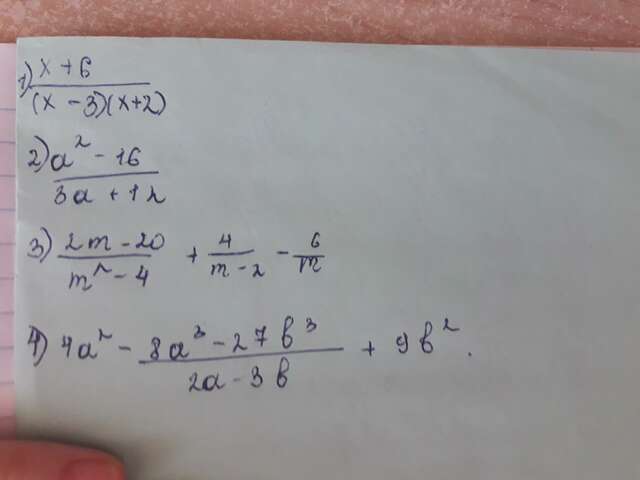 1) x + 6 / (x - 3)(x+2)
2) a² - 16 / 3a + 12
3) 2m - 20 / m² - 4 + 4 / m - 2 - 6 / m
4) 4a² - 8a³ - 27b³ / 2a - 3b + 9b².